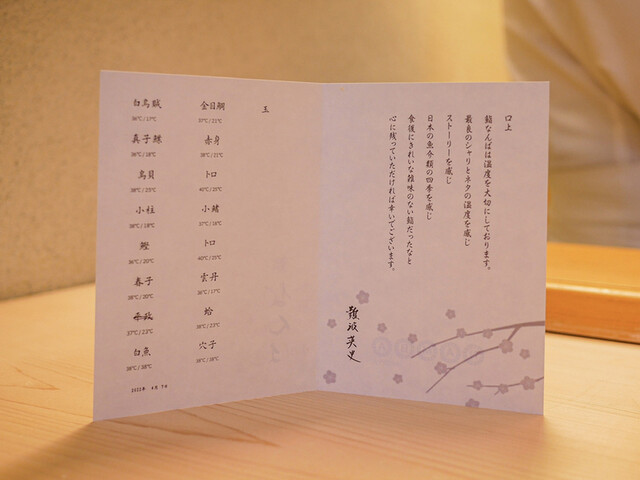 白烏賊
36℃/17℃
真子鰈
36℃/18℃
鳥貝
38℃/23℃
小柱
38℃/18℃
鰹
36℃/20℃
春子
38℃/20℃
37℃/23℃
白魚
38℃/38℃
金目鯛
37℃/21℃
赤身
38℃/21℃
トロ
40℃/25℃
小鰭
37℃/18℃
トロ
40℃/25℃
雲丹
36℃/17℃
蛤
38℃/23℃
穴子
38℃/38℃
玉
口上
鮨なんばは温度を大切にしております。
最良のシャリとネタの温度を感じ
ストーリーを感じ
日本の魚介類の四季を感じ
食後にきれいな雑味のない鮨だったなと
心に残っていただければ幸いでございます。
難波英史